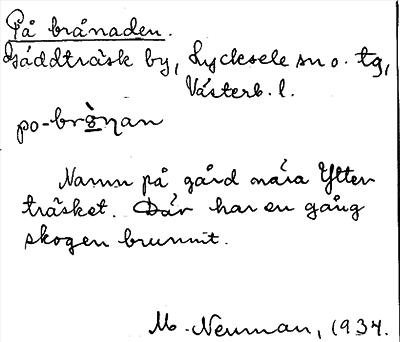 På brånaden.
Gäddträsk by, Lycksele sn o. tg,
Västerb. l.
po-brò̱nan
Namn på gård nära Ytter
träsket. Där har en gång
skogen brunnit.
M. Neuman, 1934.